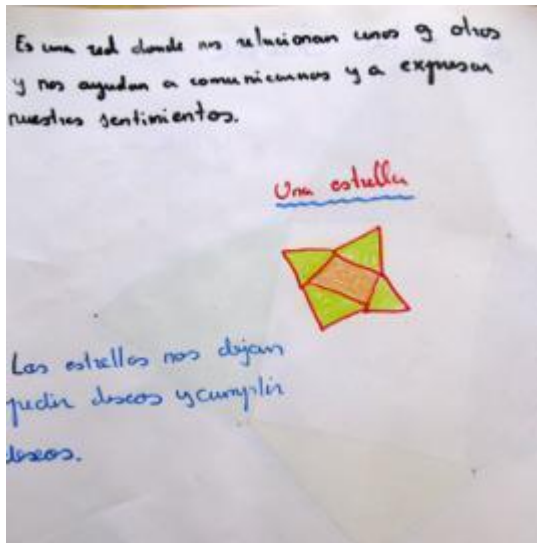 Es una red donde nos relacionan unos y otros
y nos ayudan a comunicarnos y a expresar
nuestros sentimientos.
Una estrella
Las estrellas nos dejan
pedir deseos y cumplir
deseos.